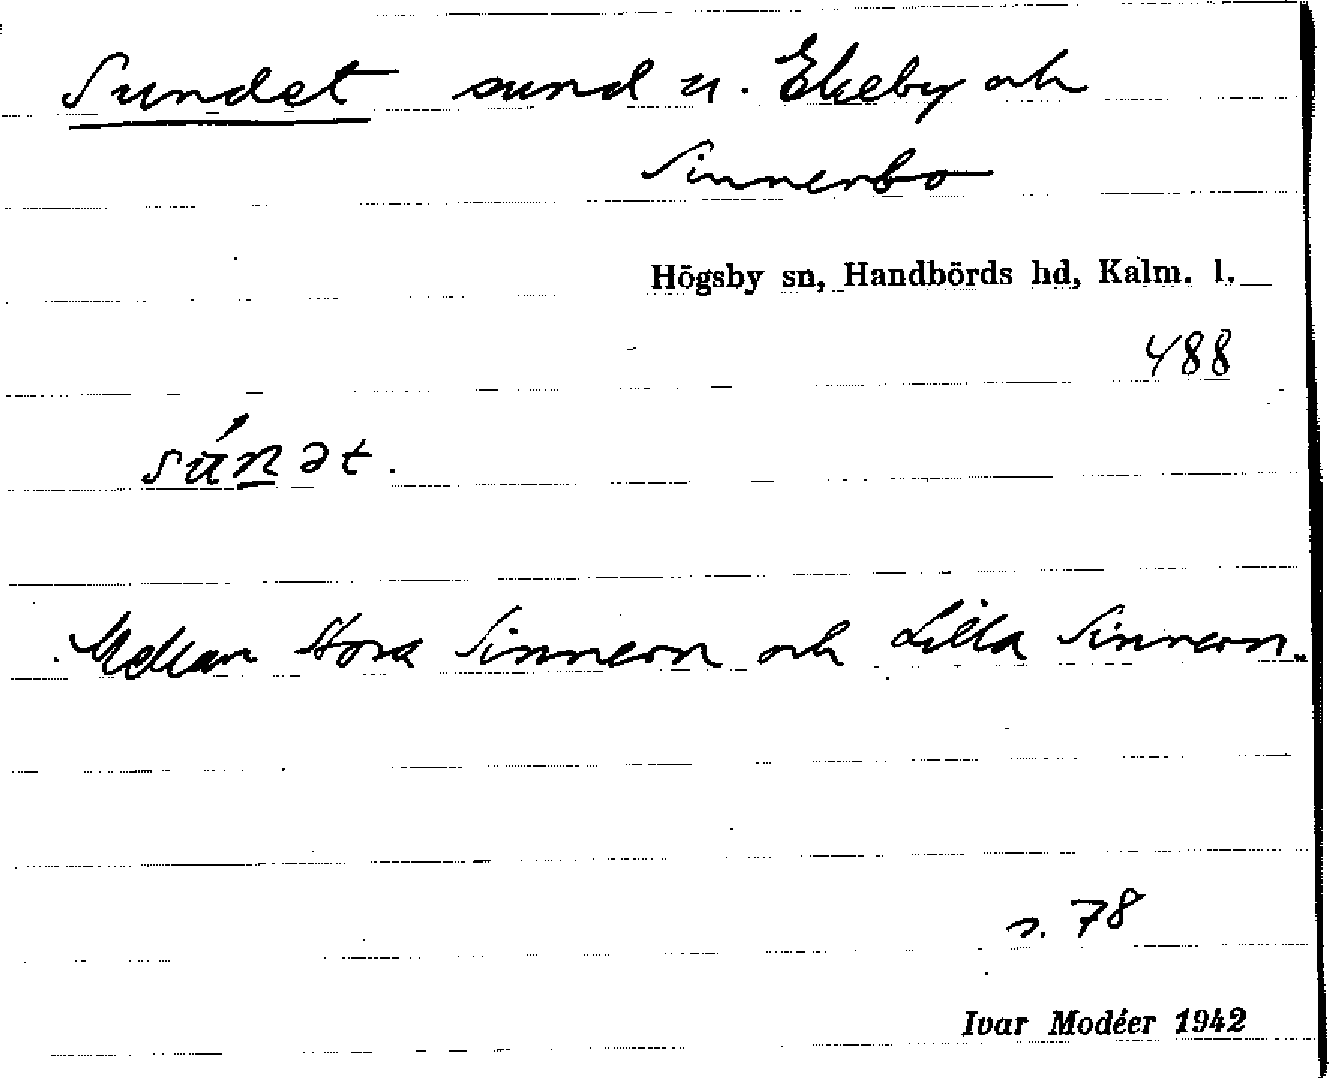 Sundet sund u. Ekeby och
Sinnerbo
Högsby sn, Handbörds hd, Kalm. l.
488
súnət.
Mellan Stora Sinnern och Lilla Sinnern.
s. 78
Ivar Modéer 1942